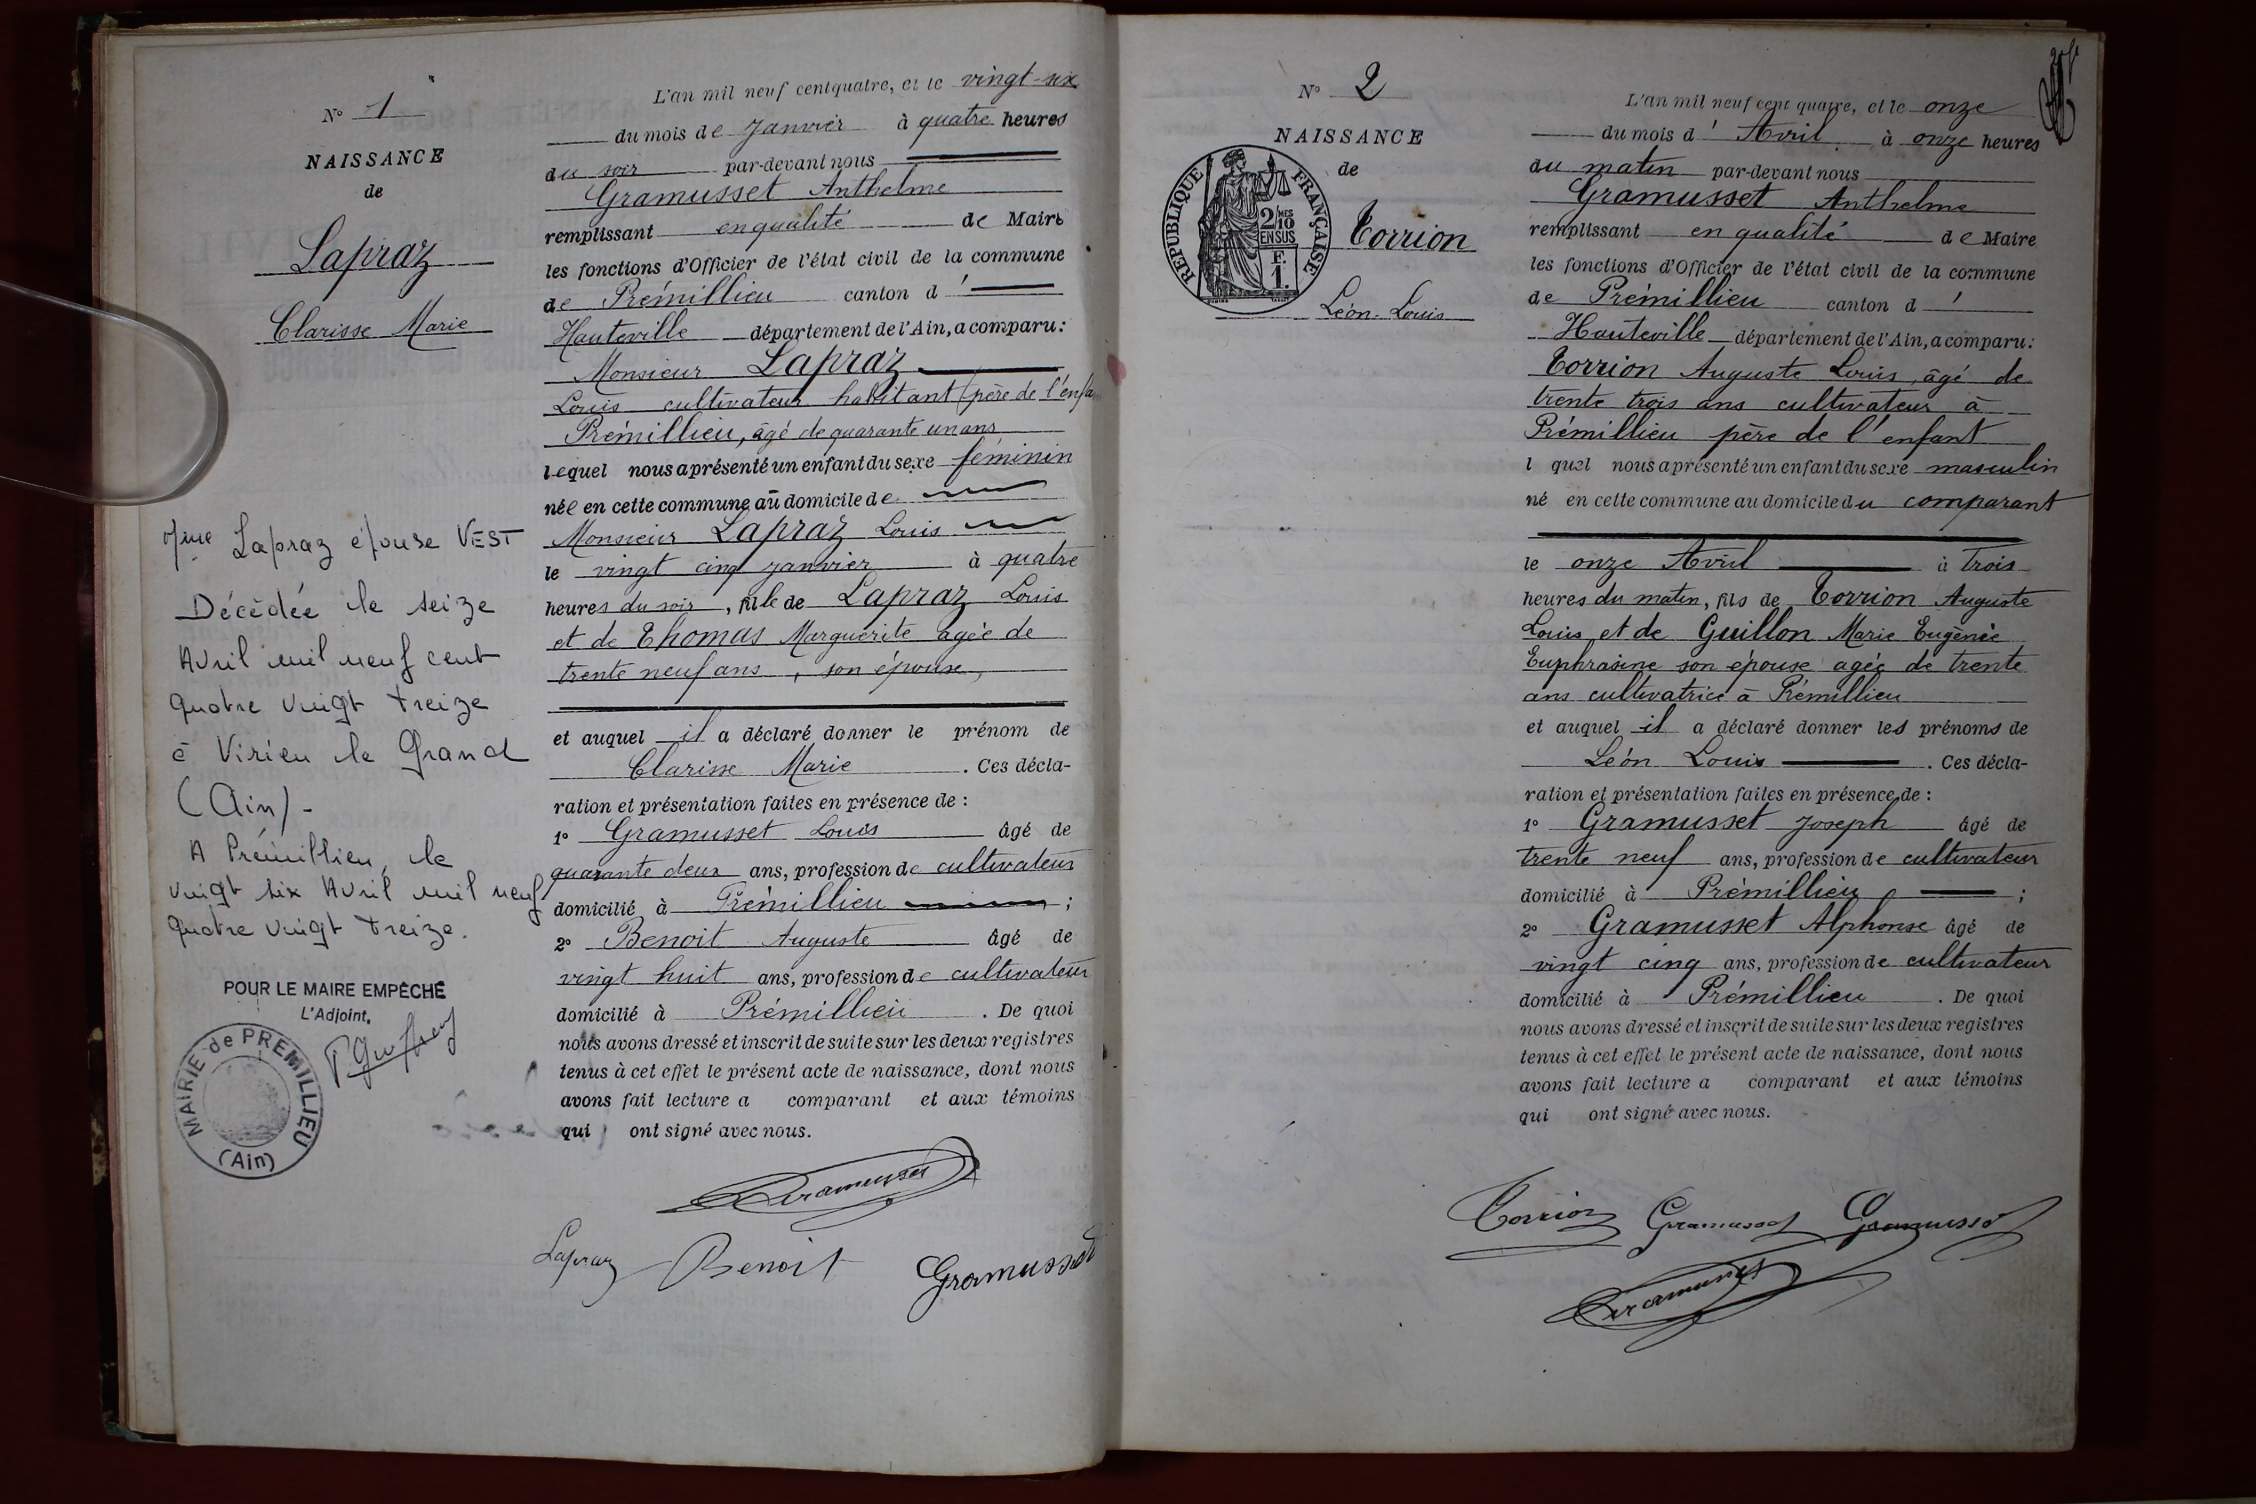 N° 1
NAISSANCE
de
Lapraz
Clarisse Marie
Mme Lapraz épouse VEST
Décédée le seize
Avril mil neuf cent
quatre vingt treize
à Virieu le Grand
(Ain)-
A Prémillieu, le
vingt six Avril mil neuf
quatre vingt treize.
POUR LE MAIRE EMPÊCHÉ
L'Adjoint,
MAIRIE de PREMILLIEU
(Ain)
L'an mil neuf cent quatre, et le vingt-six
du mois de Janvier à quatre heures
du soir par-devant nous
Gramusset Anthelme
remplissant en qualité de Maire
les fonctions d'Officier de l'état civil de la commune
de Prémillieu canton d'
Hauteville département de l'Ain, a comparu:
Monsieur Lapraz
Louis cultivateur habitant (père de l'enfa
Prémillieu, âgé de quarante un ans
lequel nous a présenté un enfant du sexe féminin
née en cette commune au domicile de
Monsieur Lapraz Louis
le vingt cinq janvier à quatre
heures du soir, fille de Lapraz Louis
et de Thomas Marguerite agée de
trente neuf ans, son épouse,
et auquel il a déclaré donner le prénom de
Clarisse Marie. Ces décla-
ration et présentation faites en présence de :
1° Gramusset Louis âgé de
quarante deux ans, profession de cultivateur
domicilié à Prémillieu ;
2° Benoit Auguste âgé de
vingt huit ans, profession de cultivateur
domicilié à Prémillieu. De quoi
nous avons dressé et inscrit de suite sur les deux registres
tenus à cet effet le présent acte de naissance, dont nous
avons fait lecture a comparant et aux témoins
qui ont signé avec nous.
Gramusset
Lapraz Benoit Gramusset
N° 2
NAISSANCE
de
RÉPUBLIQUE FRANÇAISE
2/10 MES
EN SUS
F.
1.
Torrion
Léon-Louis
L'an mil neuf cent quatre, et le onze
du mois d' Avril à onze heures
du matin par-devant nous
Gramusset Anthelme
remplissant en qualité de Maire
les fonctions d'Officier de l'état civil de la commune
de Prémillieu canton d'
Hauteville département de l'Ain, a comparu:
Torrion Auguste Louis, âgé de
trente trois ans cultivateur à
Prémillieu père de l'enfant
l quel nous a présenté un enfant du sexe masculin
né en cette commune au domicile du comparant
le onze Avril à trois
heures du matin, fils de Torrion Auguste
Louis et de Guillon Marie Eugénie
Euphrasine son épouse agée de trente
ans cultivatrice à Prémillieu
et auquel il a déclaré donner les prénoms de
Léon Louis. Ces décla-
ration et présentation faites en présence de :
1° Gramusset Joseph âgé de
trente neuf ans, profession de cultivateur
domicilié à Prémillieu ;
2° Gramusset Alphonse âgé de
vingt cinq ans, profession de cultivateur
domicilié à Prémillieu. De quoi
nous avons dressé et inscrit de suite sur les deux registres
tenus à cet effet le présent acte de naissance, dont nous
avons fait lecture a comparant et aux témoins
qui ont signé avec nous.
Torrion Gramusset Gramusset
Gramusset